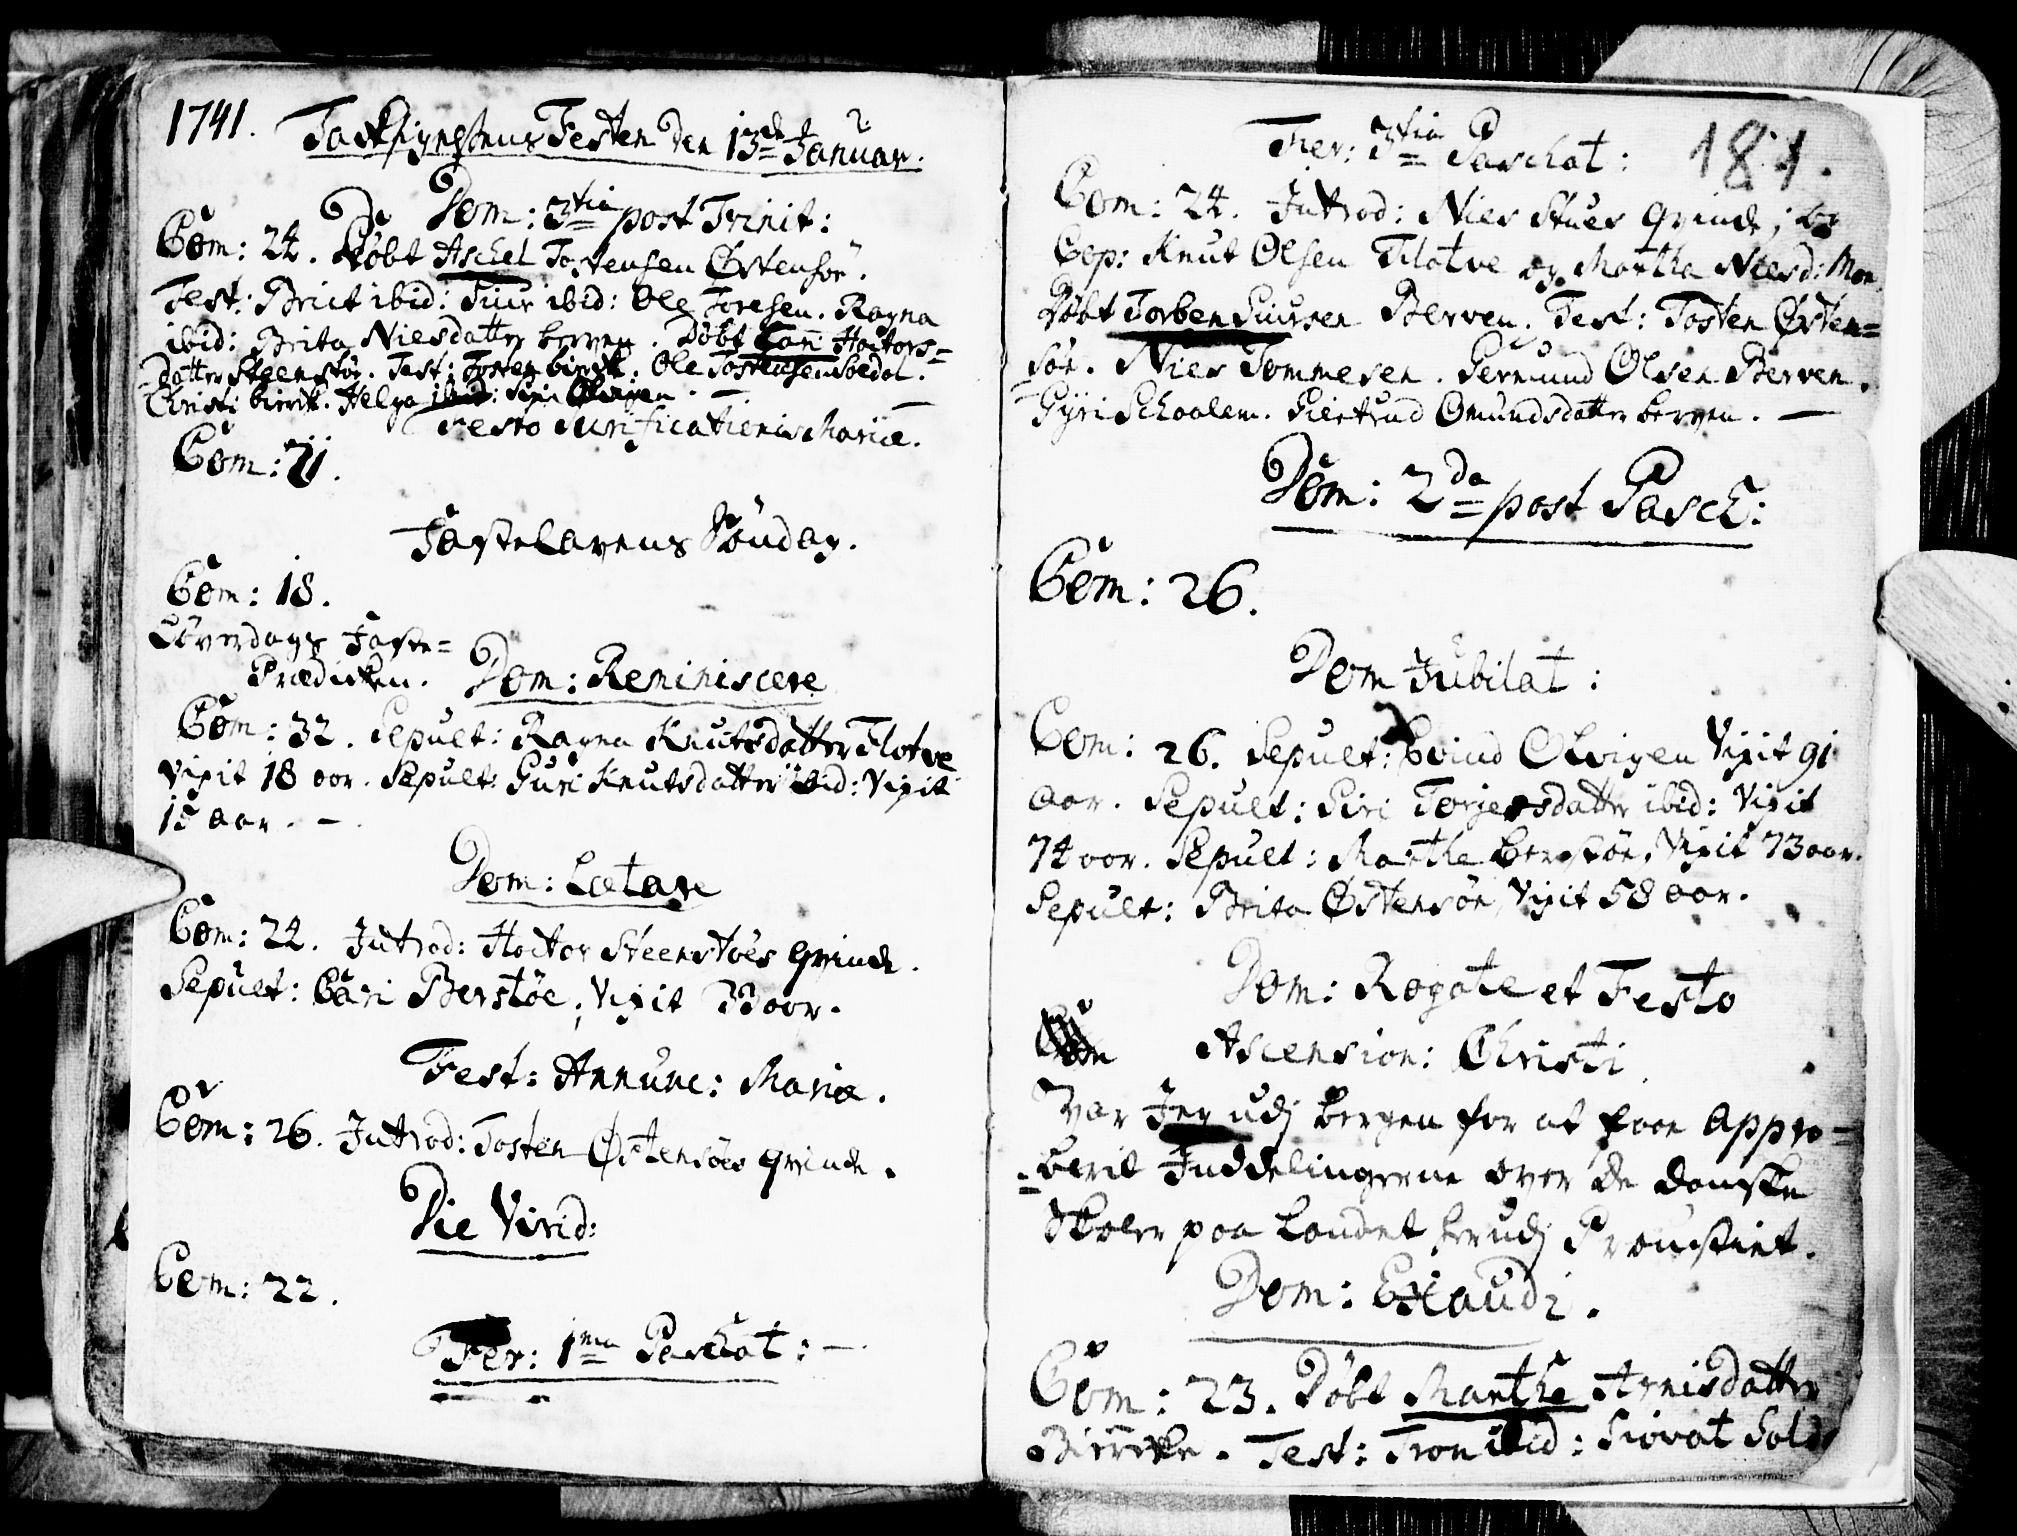 1741. Tacksigelsens Festen den 13de Januar.
Dom: 3tia post Trinit:
Com: 24. Döbt Aschel Tostensen Østensöe.
Test: Brict ibid: Siur ibid: Ole Toresen. Ragna
ibid: Brita Nielsdatter Berven. Döbt Cari Hactors=
datter Steenstöe. Test: Tosten birck. Ole Tostensen Soldal.
Christi birck. Helga ibid: Siri Olvigen.
Festo Purificationis Mariæ.
Com: 21.
Fastelavens Söndag.
Com: 18.
Löverdags Faste=
Prædicken. Dom: Reminiscere
Com: 32. Sepult: Ragna Knutsdatter Flotve
Vixit 18 aar. Sepult: Guri Knutsdatter ibid: Vixit
15 aar. —
Dom: Lætare
Com: 24. Introd: Hactor Steenstöes qvinde.
Sepult: Cari Berstöe, Vixit 33 aar.
Fest: Annunc: Mariæ.
Com: 26. Introd: Tosten Østensöes qvinde.
Die Virid:
Com: 22.
Fer: 1ma Paschat: —
Fer: 3tia Paschat: 181.
Com: 24. Introd: Niels Stues qvinde; og
Cop: Knut Olsen Flotve og Martha Nielsd: Mo
Döbt Torben Siursen Berven. Test: Tosten Østen=
söe. Niels Tommesen. Germund Olsen Berven.
Gyri Schaalem. Siertrud Omundsdatter berven. —
Dom: 2da post Pasch:
Com: 26.
Dom Jubilat:
Com: 26. Sepult: Eivind Olvigen Vixit 91
aar. Sepult: Siri Torgersdatter ibid: Vixit
74 aar. Sepult: Marthe Berstöe, Vixit 73 aar.
Sepult: Brita Østensöe, Vixit 58 aar.
Dom: Rogate et Festo
Ascension: Christi.
Var Jeg udj Bergen for at faae appro=
=berit Inddelingerne over de danske
Skoler paa Landet her udj Proustiet.
Dom: Exaudi.
Com: 23. Döbt Marthe Arnisdatter
Biercke. Test: Tron ibid: Siovat Sold